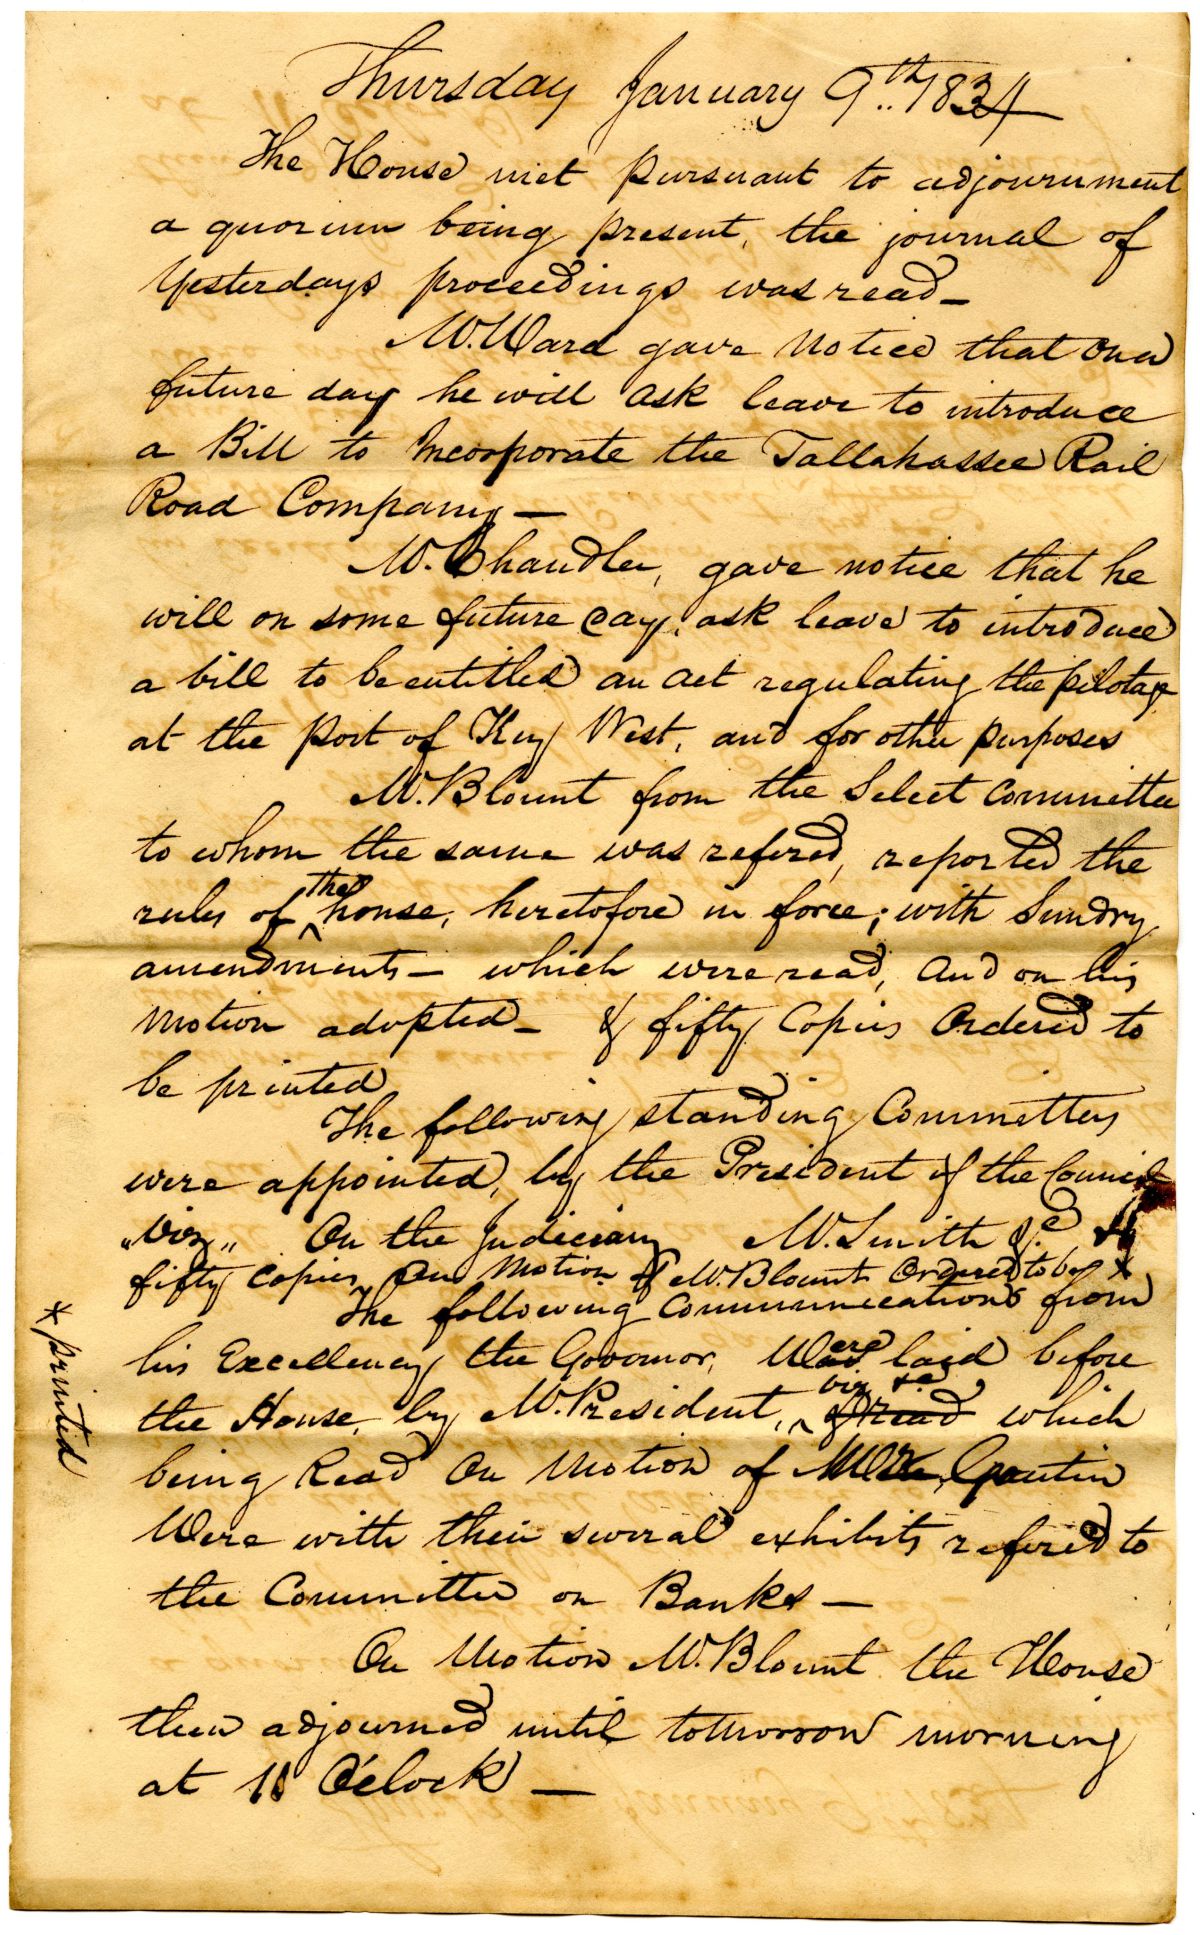 Thursday January 9th 1834
The House met pursuant to adjournment
a quorum being present, the journal of
Yesterdays proceedings was read—
Mr. Ward gave Notice that on a
future day he will ask leave to introduce
a Bill to Incorporate the Tallahassee Rail
Road Company—
Mr. Chandler, gave notice that he
will on some future day, ask leave to introduce
a bill to be entitled an act regulating the pilotage
at the port of Key West, and for other purposes
Mr. Blount from the Select Committee
to whom the same was refered, reported the
rules of the house, heretofore in force; with Sundry
amendments— which were read, and on his
Motion adopted— & fifty Copies Ordered to
be printed
The following standing Committees
were appointed, by the President of the Council
„Viz„ On the Judiciary Mr. Smith &c
fifty copies on Motion of Mr. Blount Ordered to be *
* printed
The following Communications from
his Excellency the Governor, Were laid before
the House, by Mr. President, viz &c, which
being Read On Motion of Mr. Gautier
Were with their several exhibits refered to
the Committee on Banks—
On Motion Mr. Blount the House
then adjourned until tomorrow morning
at O'clock—